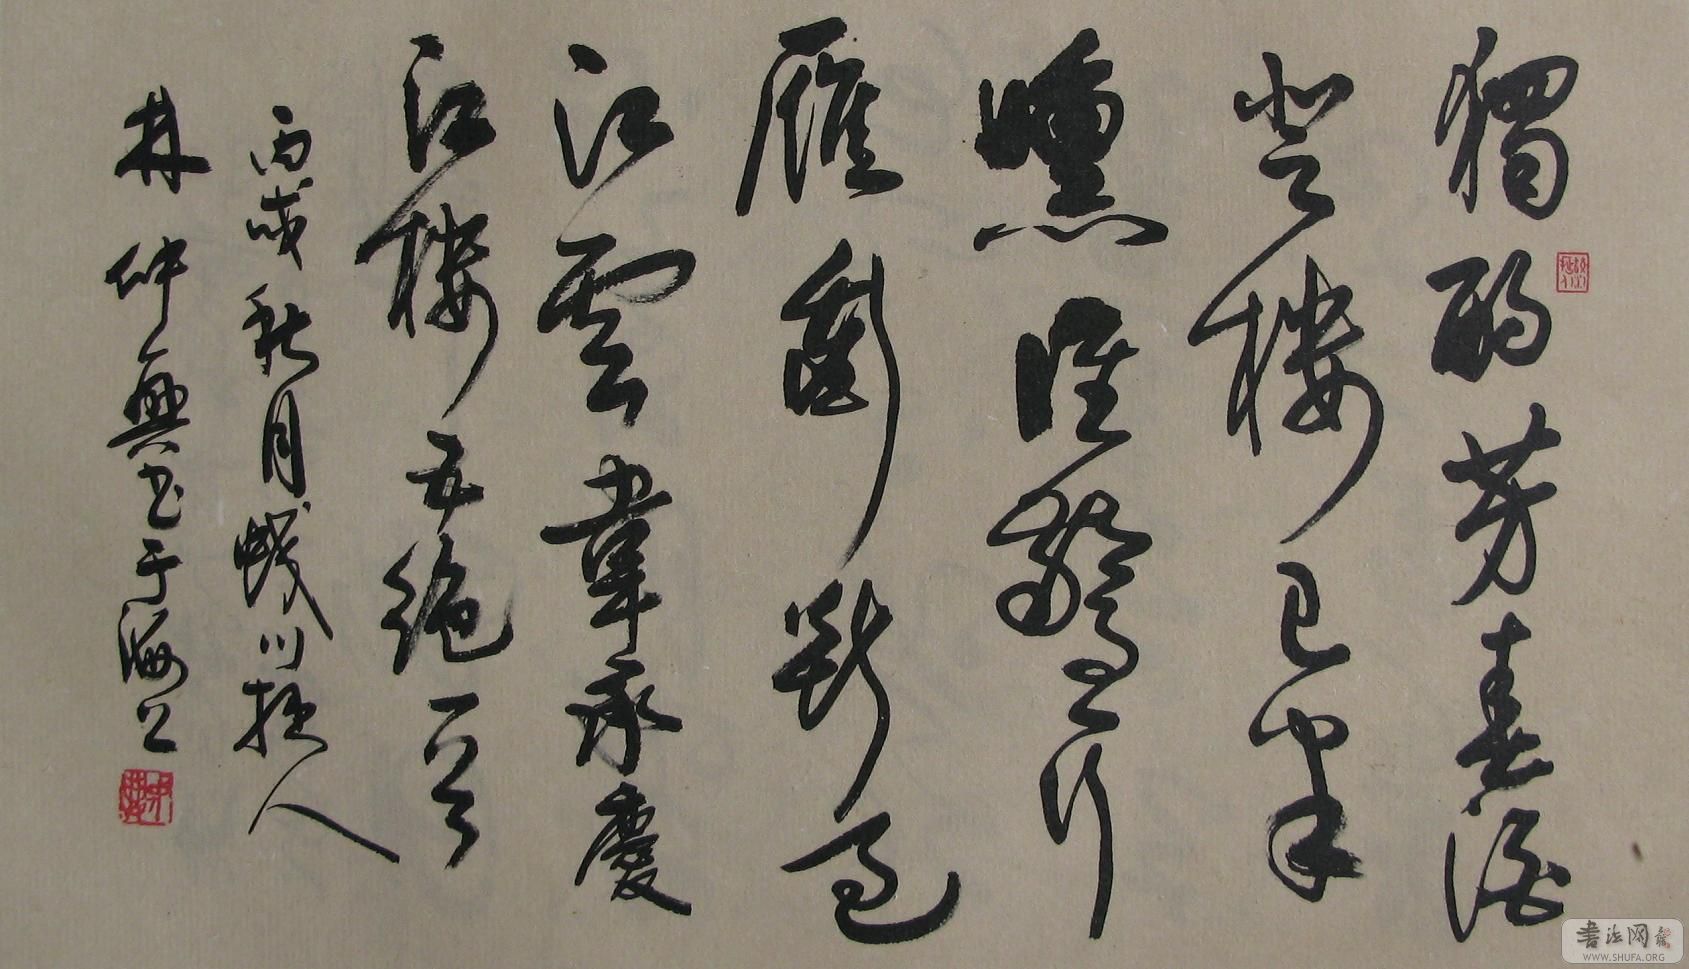 獨酌芳春酒
登樓已半
醺誰驚一行
雁衝斷過
江雲韋承慶
江樓五絶一首
丙戌秋月川人
林仲興書于海上
書法网
WWW.SHUFA.ORG